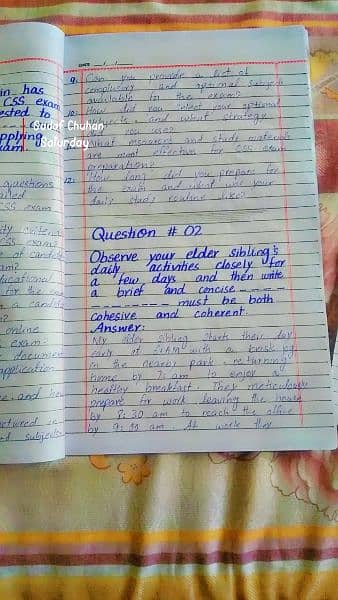 in has
CSS exam
ested to
applying
exam
questions
ailed
CSS exam
ity criteria
CSS exam?
of candid
am?
ucational
for the
a candid
n?
online
exam?
documen
application
e and how
uctured in
ed subjects
Suaaf Chuhan
Saturday
DATE
9. Can you provide a list of
compulsory and optional subjects
available for the exam?
10. How did you select your optional
subjects, and what strategy
you use?
What resources and study materials
are most effective for CSS exam
preparation?
12. How long did you prepare for
the exam and what was your
daily study routine like?
Question # 02
Observe your elder sibling's
daily activities closely for
a few days and then write
a brief and concise
must be both
cohesive and coherent.
Answer:
My elder sibling starts their day
early at 5:AM with a brisk jog
in the nearby park, returning
home by 7:am to enjoy a
healthy breakfast. They meticulously
prepare for work leaving the house
by 8:30 am to reach the office
by 9:00 am. At work they